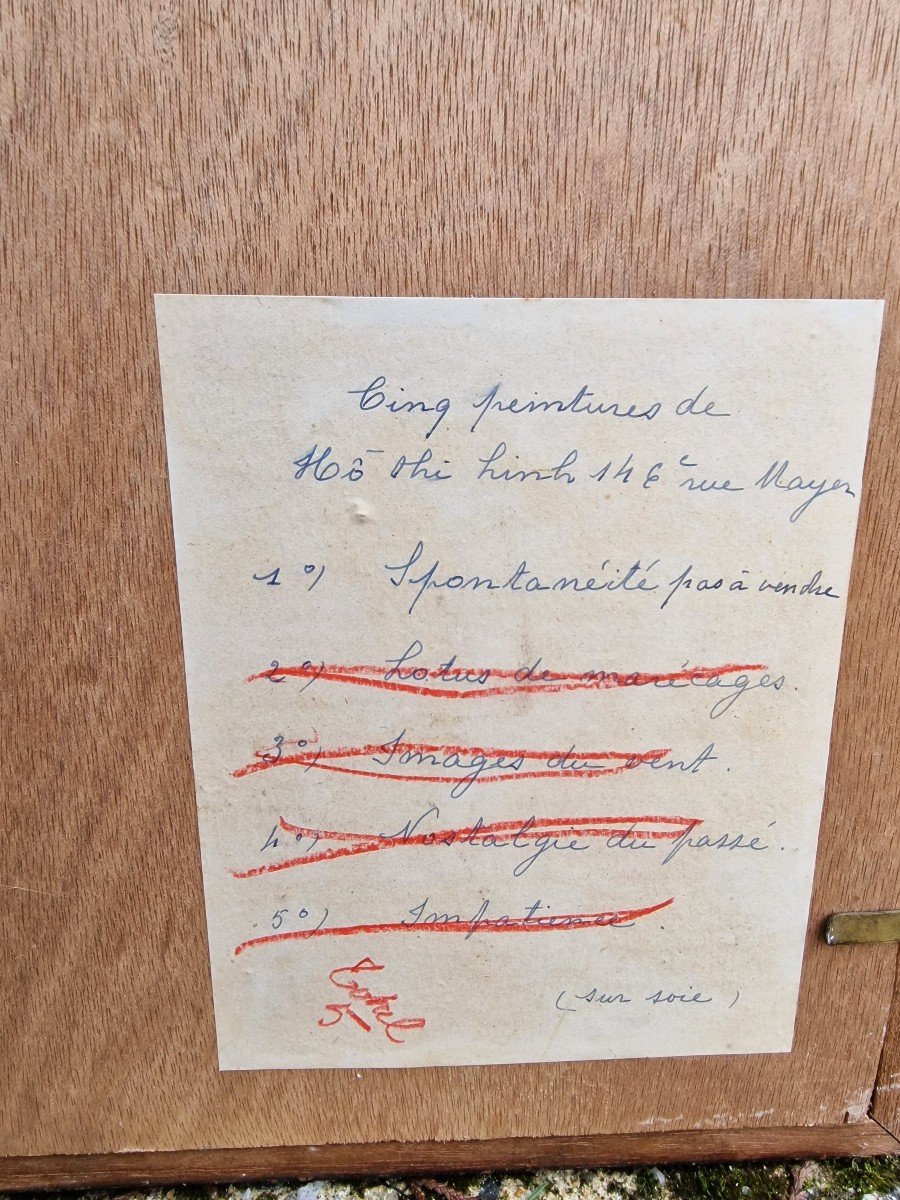 Cinq peintures de
Hô thi Linh 146 rue Mayer
1°) Spontanéité pas à vendre
2°) Lotus de marécages.
3°) Images du vent.
4°) Nostalgie du passé.
5°) Impatience
(sur soie)
Total
5